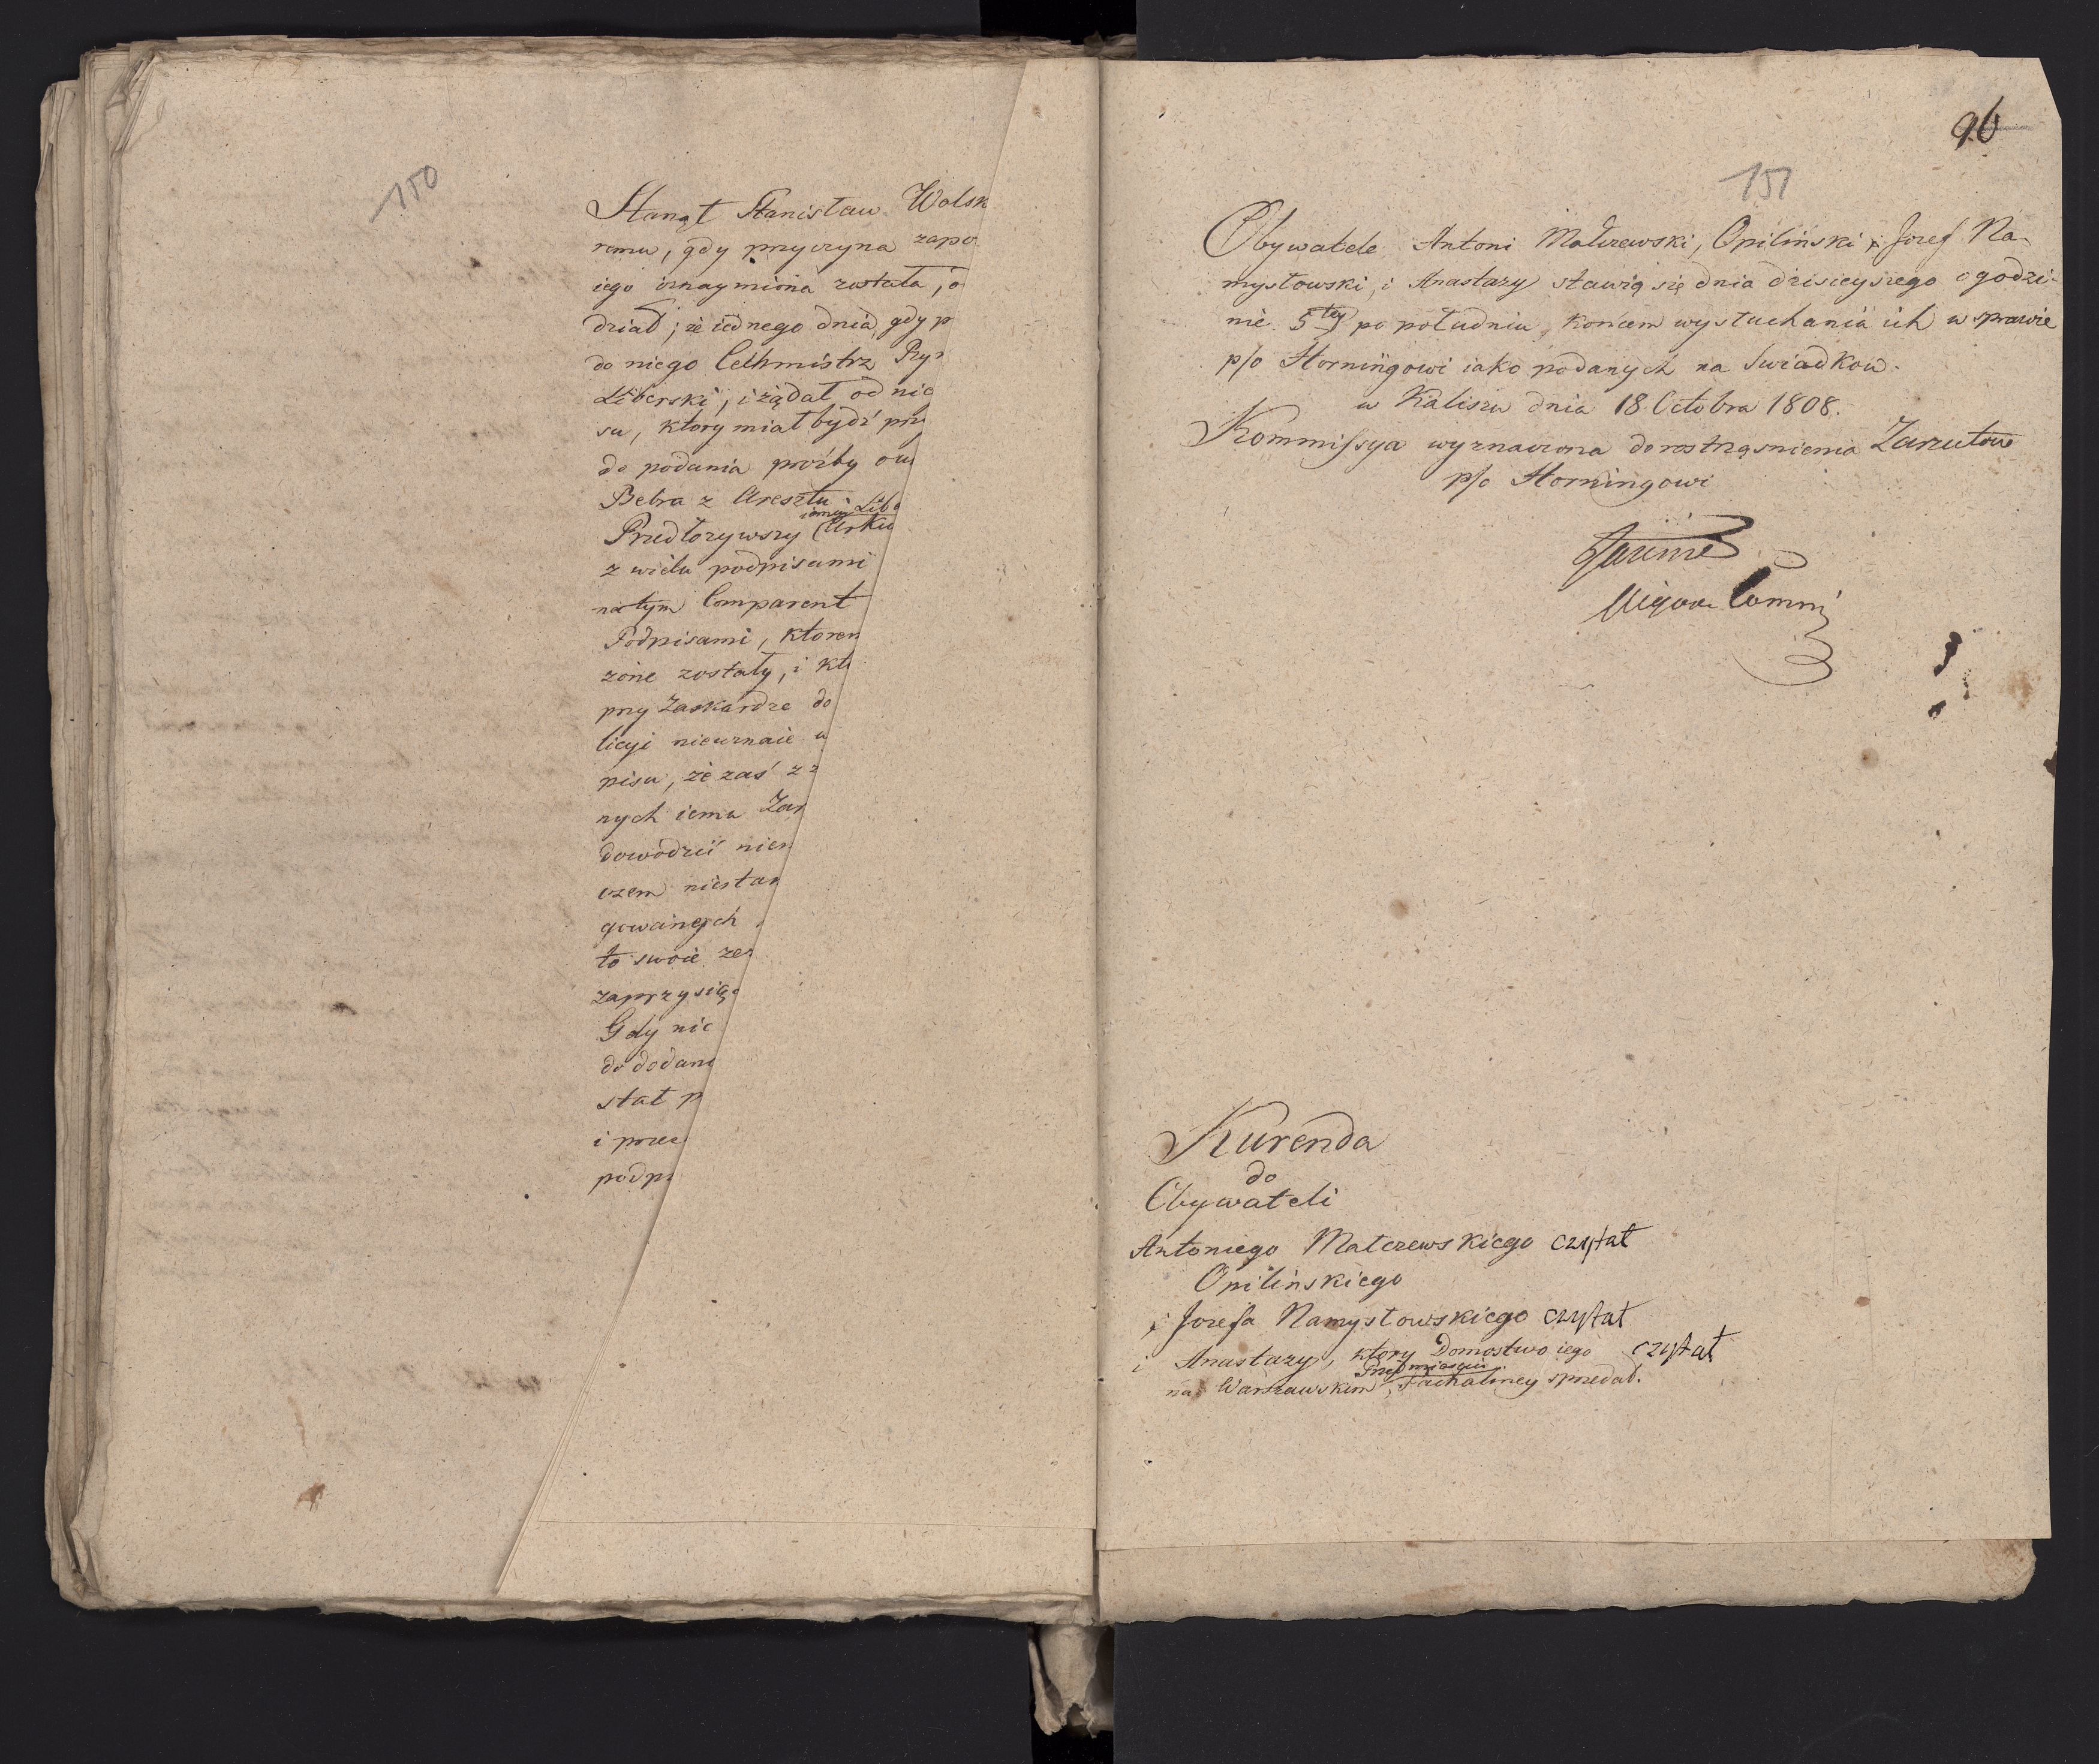 150
Stanął Stanisław Wolsk
remu, gdy przyczyna zapo
iego oznaymiona została, o
dział; że iednego dnia gdy p
do niego Cechmistrz Rzy
Liberski, i żądał od nie
su, ktory miał bydź prz
do podania proźby ow
Bebra z Aresztu
iemu Libe
Przedłożywszy Arku
z wielu podpisami
na tym Comparent
Podpisami, ktorem
żone zostały, i kt
przy Zaskardze do
licyi nieuznaie w
pisu, że zaś z z
nych iemu Zar
dowodzić nie
czem niestar
gowanych
to swoie ze
zaprzysięg
Gdy nic
do dodani
stał p
i prze
podpi
96
151
Obywatele Antoni Małczewski, Opiliński i Jozef Na-
mysłowski, i Anastazy stawią się dnia dzisieyszego o godzi-
nie 5tey po południu, końcem wysłuchania ich w sprawie
p/o Horningowi iako podanych na Swiadkow.
w Kaliszu dnia 18 Octobra 1808.
Kommissya wyznaczona do rostrząsnienia Zarzutow
p/o Horningowi
Comm
Kurenda
do
Obywateli
Antoniego Małczewskiego czytał
Opilińskiego
i Jozefa Namysłowskiego czytał
i Anastazy, ktory Domostwo iego czytał
Przedmiesciu
na Warszawskim, Pachalney sprzedał.